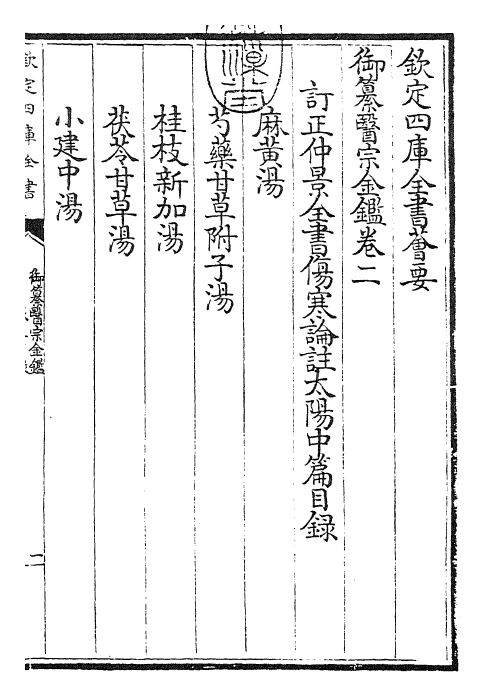 欽定四庫全書薈要
御纂醫宗金鑑卷二
訂正仲景全書傷寒論註太陽中篇目録
麻黃湯
芍藥甘草附子湯
桂枝新加湯
茯苓甘草湯
小建中湯
欽定四庫全書
御纂醫宗金鑑